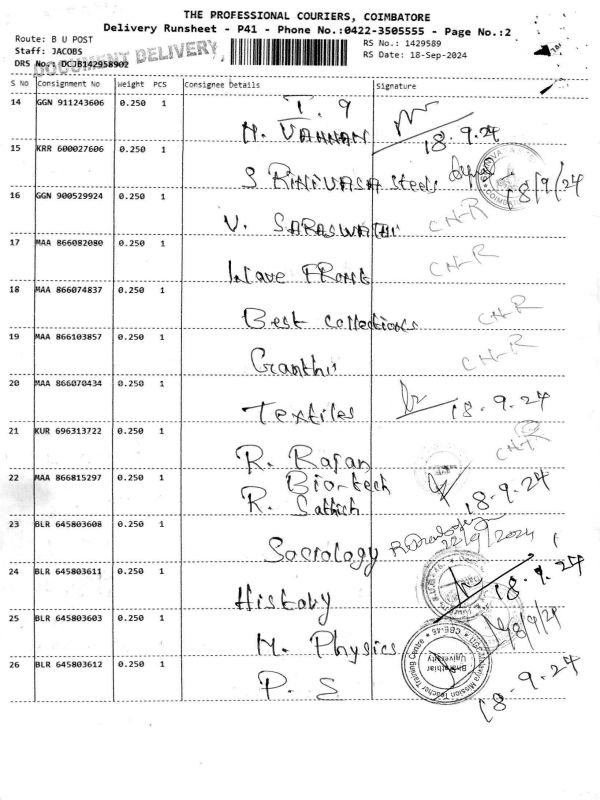 THE PROFESSIONAL COURIERS, COIMBATORE
Delivery Runsheet - P41 - Phone No.:0422-3505555 - Page No.:2
Route: B U POST
RS No.: 1429589
Staff: JACOBS
RS Date: 18-Sep-2024
DRS No.: DCJB142958902
DOCUMENT DELIVERY
S No Consignment No Weight PCS Consignee Details Signature
14 GGN 911243606 0.250 1 T. 9
M. VANNAN 18.9.24
15 KRR 600027606 0.250 1
SRINIVASA Steels 18/9/24
16 GGN 900529924 0.250 1
V. SARASWATHI CN-R
17 MAA 866082080 0.250 1
Wave FRont CN-R
18 MAA 866074837 0.250 1
Best collections CN-R
19 MAA 866103857 0.250 1
CN-R
20 MAA 866070434 0.250 1
Textiles 18.9.24
21 KUR 696313722 0.250 1
R. Rajan CN-R
22 MAA 866815297 0.250 1 Bio-tech
R. Sathish 18.9.24
23 BLR 645803608 0.250 1
Sociology 22/9/2024
24 BLR 645803611 0.250 1
History 18.9.24
25 BLR 645803603 0.250 1
M. Physics 18/9/24
26 BLR 645803612 0.250 1
P. S 18.9.24
Bharathiar
University
CBE-46